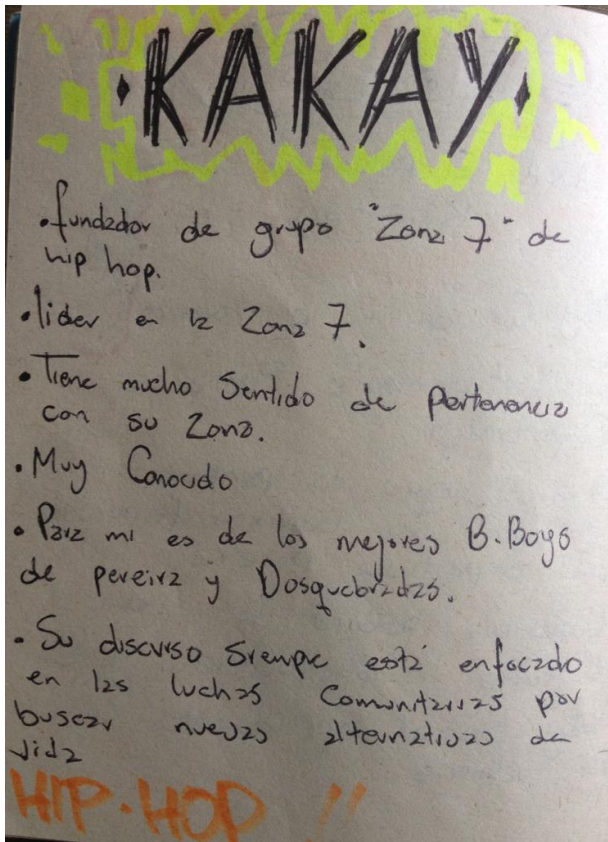 ·KAKAY·
·fundador de grupo "Zona 7" de
hip hop.
·lider en la Zona 7.
·Tiene mucho Sentido de pertenencia
con su Zona.
·Muy Conocido
·Para mi es de los mejores B-Boys
de pereira y Dosquebradas.
·Su discurso Siempre está enfocado
en las luchas Comunitarias por
buscar nuevas alternativas de
vida
HIP-HOP !!